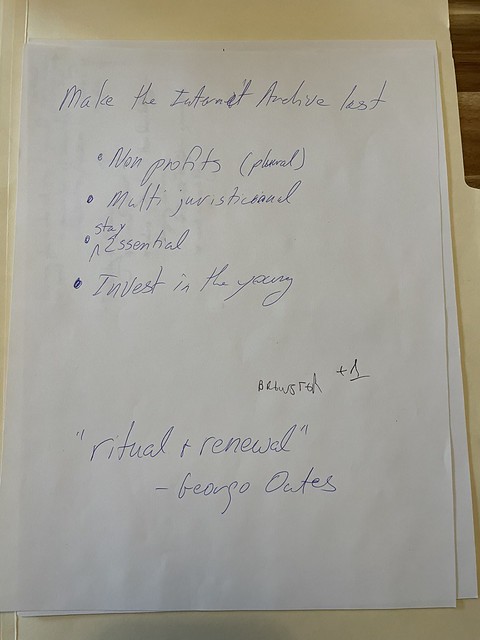 Make the Internet Archive last
• Non profits (plural)
• Multi juristicional
stay
• ^ Essential
• Invest in the young
BREWSTER +1
"ritual + renewal"
- George Oates